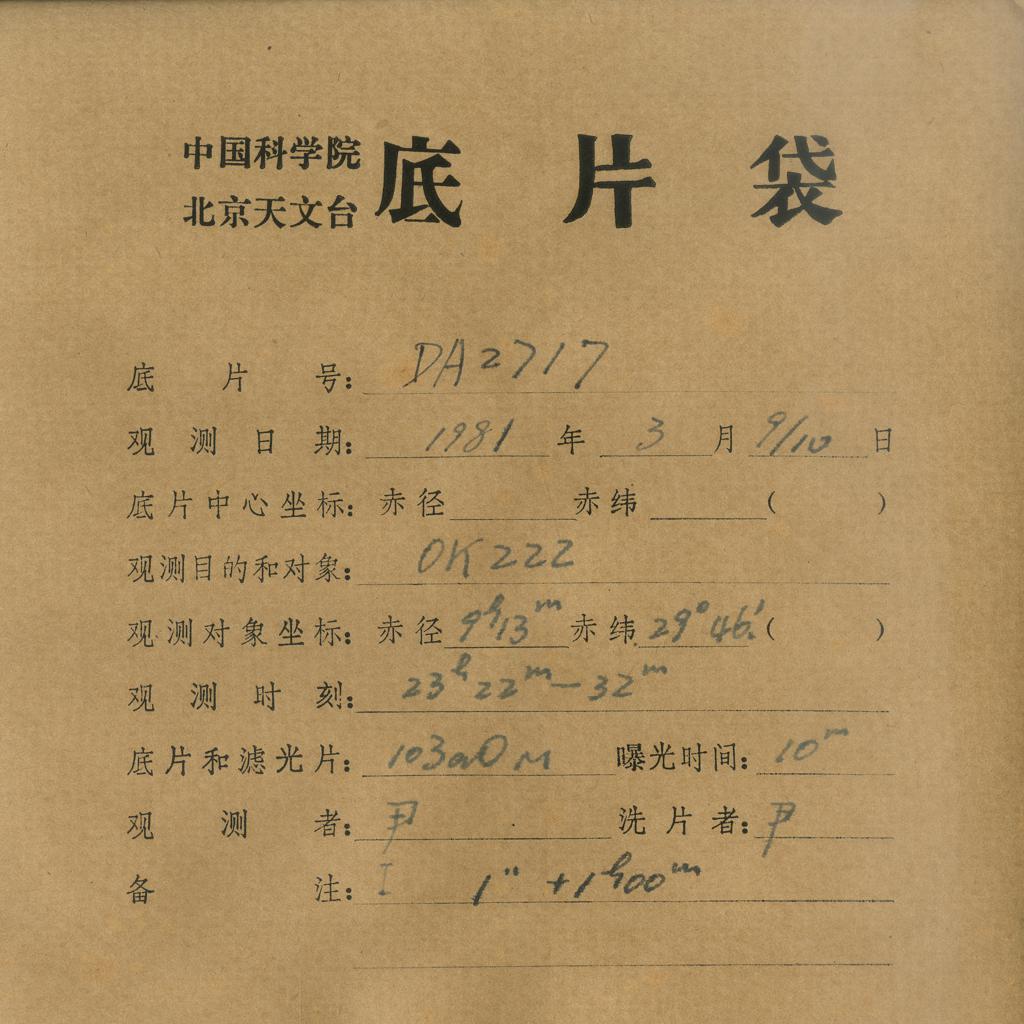 中国科学院
北京天文台 底片袋
底片号: DA2717
观测日期: 1981 年 3 月 9/10 日
底片中心坐标: 赤径 赤纬 ( )
观测目的和对象: OK222
观测对象坐标: 赤径 9h13m 赤纬 29°46′ ( )
观测时刻: 23h22m—32m
底片和滤光片: 103aO M 曝光时间: 10m
观测者: 尹 洗片者: 尹
备注: I 1" +1h00m